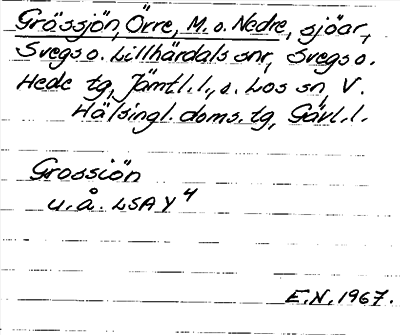 Grässjön, Örre, M. o. Nedre, sjöar,
Svegs o. Lillhärdals snr, Svegs o.
Hede tg, Jämtl. l., o. Los sn, V.
Hälsingl. doms. tg, Gävl. l.
Grossiön
u. å. LSA Y 4
E.N. 1967.